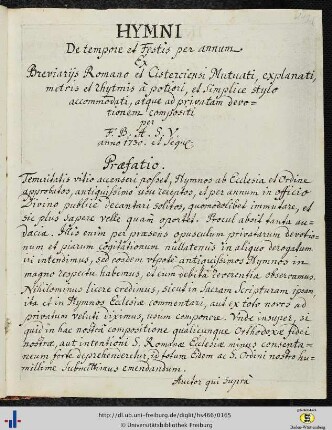 HYMNI
De tempore et Festis per annum
Ex
Breviarijs Romano et Cisterciensi Mutuati, explanati,
metris et rhytmis à potiori, et simplice stylo
accommodati, atque ad privatam devo-
tionem compositi
per
F. B. A. S. V.
anno 1730. et Seqq.
Præfatio.
Temeritatis vitio accenseri posset, Hymnos ab Ecclesia et Ordine
approbatos, antiquissimo usu receptos, et per annum in officio
Divino publicè decantari solitos, quomodolibet immutare, et
sic plus sapere velle quàm oportet. Procul absit tanta au-
dacia. Illis enim per præsens opusculum privatarum devotio-
num et piarum cogitationum nullatenus in aliquo derogatum
iri intendimus, sed eosdem utpote antiquissimos Hymnos in
magno respectu habemus, et cum debitâ reverentiâ observamus.
Nihilominus licere credimus, sicut in Sacram Scripturam
ita et in Hymnos Ecclesiæ commentari, aut ex toto novos ad
privatum velut diximus, usum componere. Unde insuper, si
quid in hac nostrâ compositione qualicunque Orthodoxæ fidei
nostræ, aut intentioni S. Romanæ Ecclesiæ minus consenta-
neum forte deprehenderetur, id totum Eidem ac S. Ordini nostro hu-
millime submittimus emendandum.
Author qui suprà
http://dl.ub.uni-freiburg.de/diglit/hs466/0165
© Universitätsbibliothek Freiburg